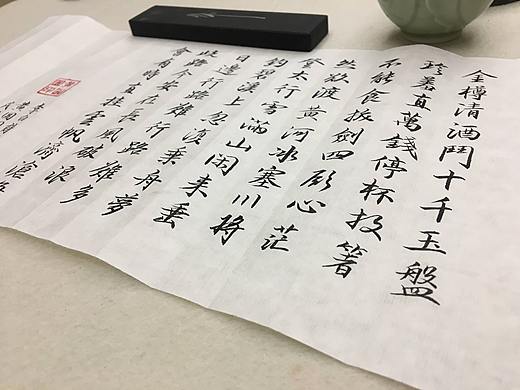 金樽清酒鬥十千玉盤
珍羞直萬錢停杯投箸
不能食拔劍四顧心茫
然欲渡黃河冰塞川將
登太行雪滿山閑來垂
釣碧溪上忽復乘舟夢
日邊行路難行路難多
歧路今安在長風破浪
會有時直掛雲帆濟滄